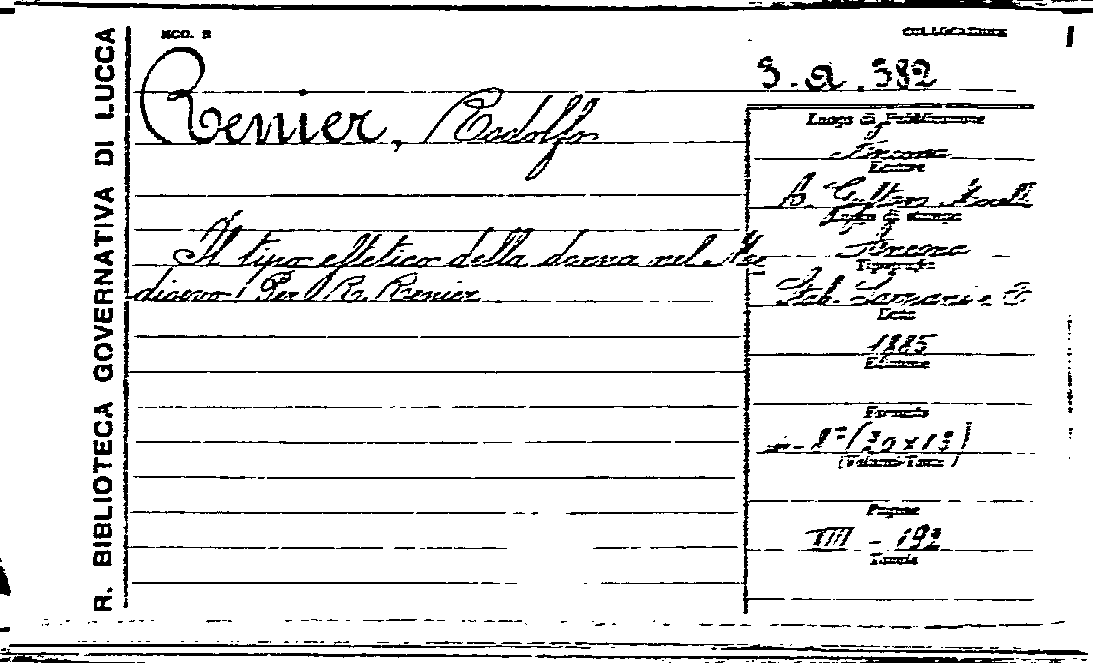 R. BIBLIOTECA GOVERNATIVA DI LUCCA
MOD. B
COLLOCAZIONE
3. a. 382
Renier, Rodolfo
Il tipo estetico della donna nel Me
dioevo / Per R. Renier
Luogo di Pubblicazione
Ancona
Editore
A. Gustavo Morelli
Luogo di stampa
Ancona
Tipografia
Stab. Sarzani e C
Data
1885
Edizione
Formato
in-8° (20x13)
(Volumi-Tomi)
Pagine
XIII - 192
Tavole